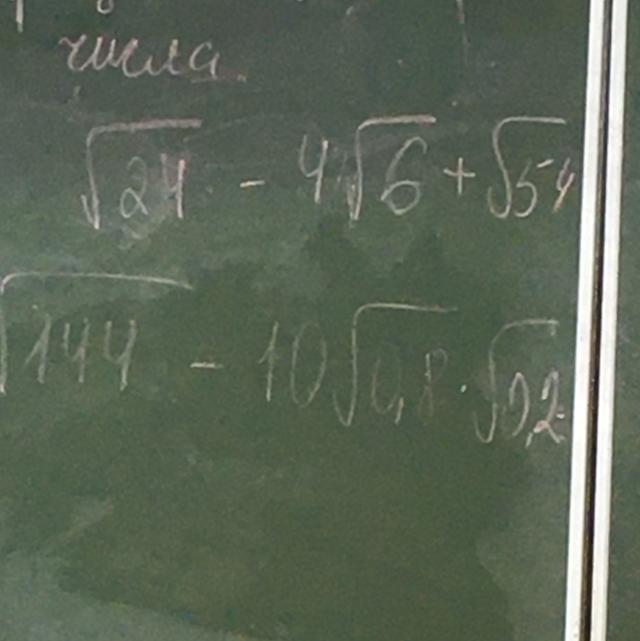 числа
√24 - 4√6 + √54
√144 - 10√0,8 · √0,2